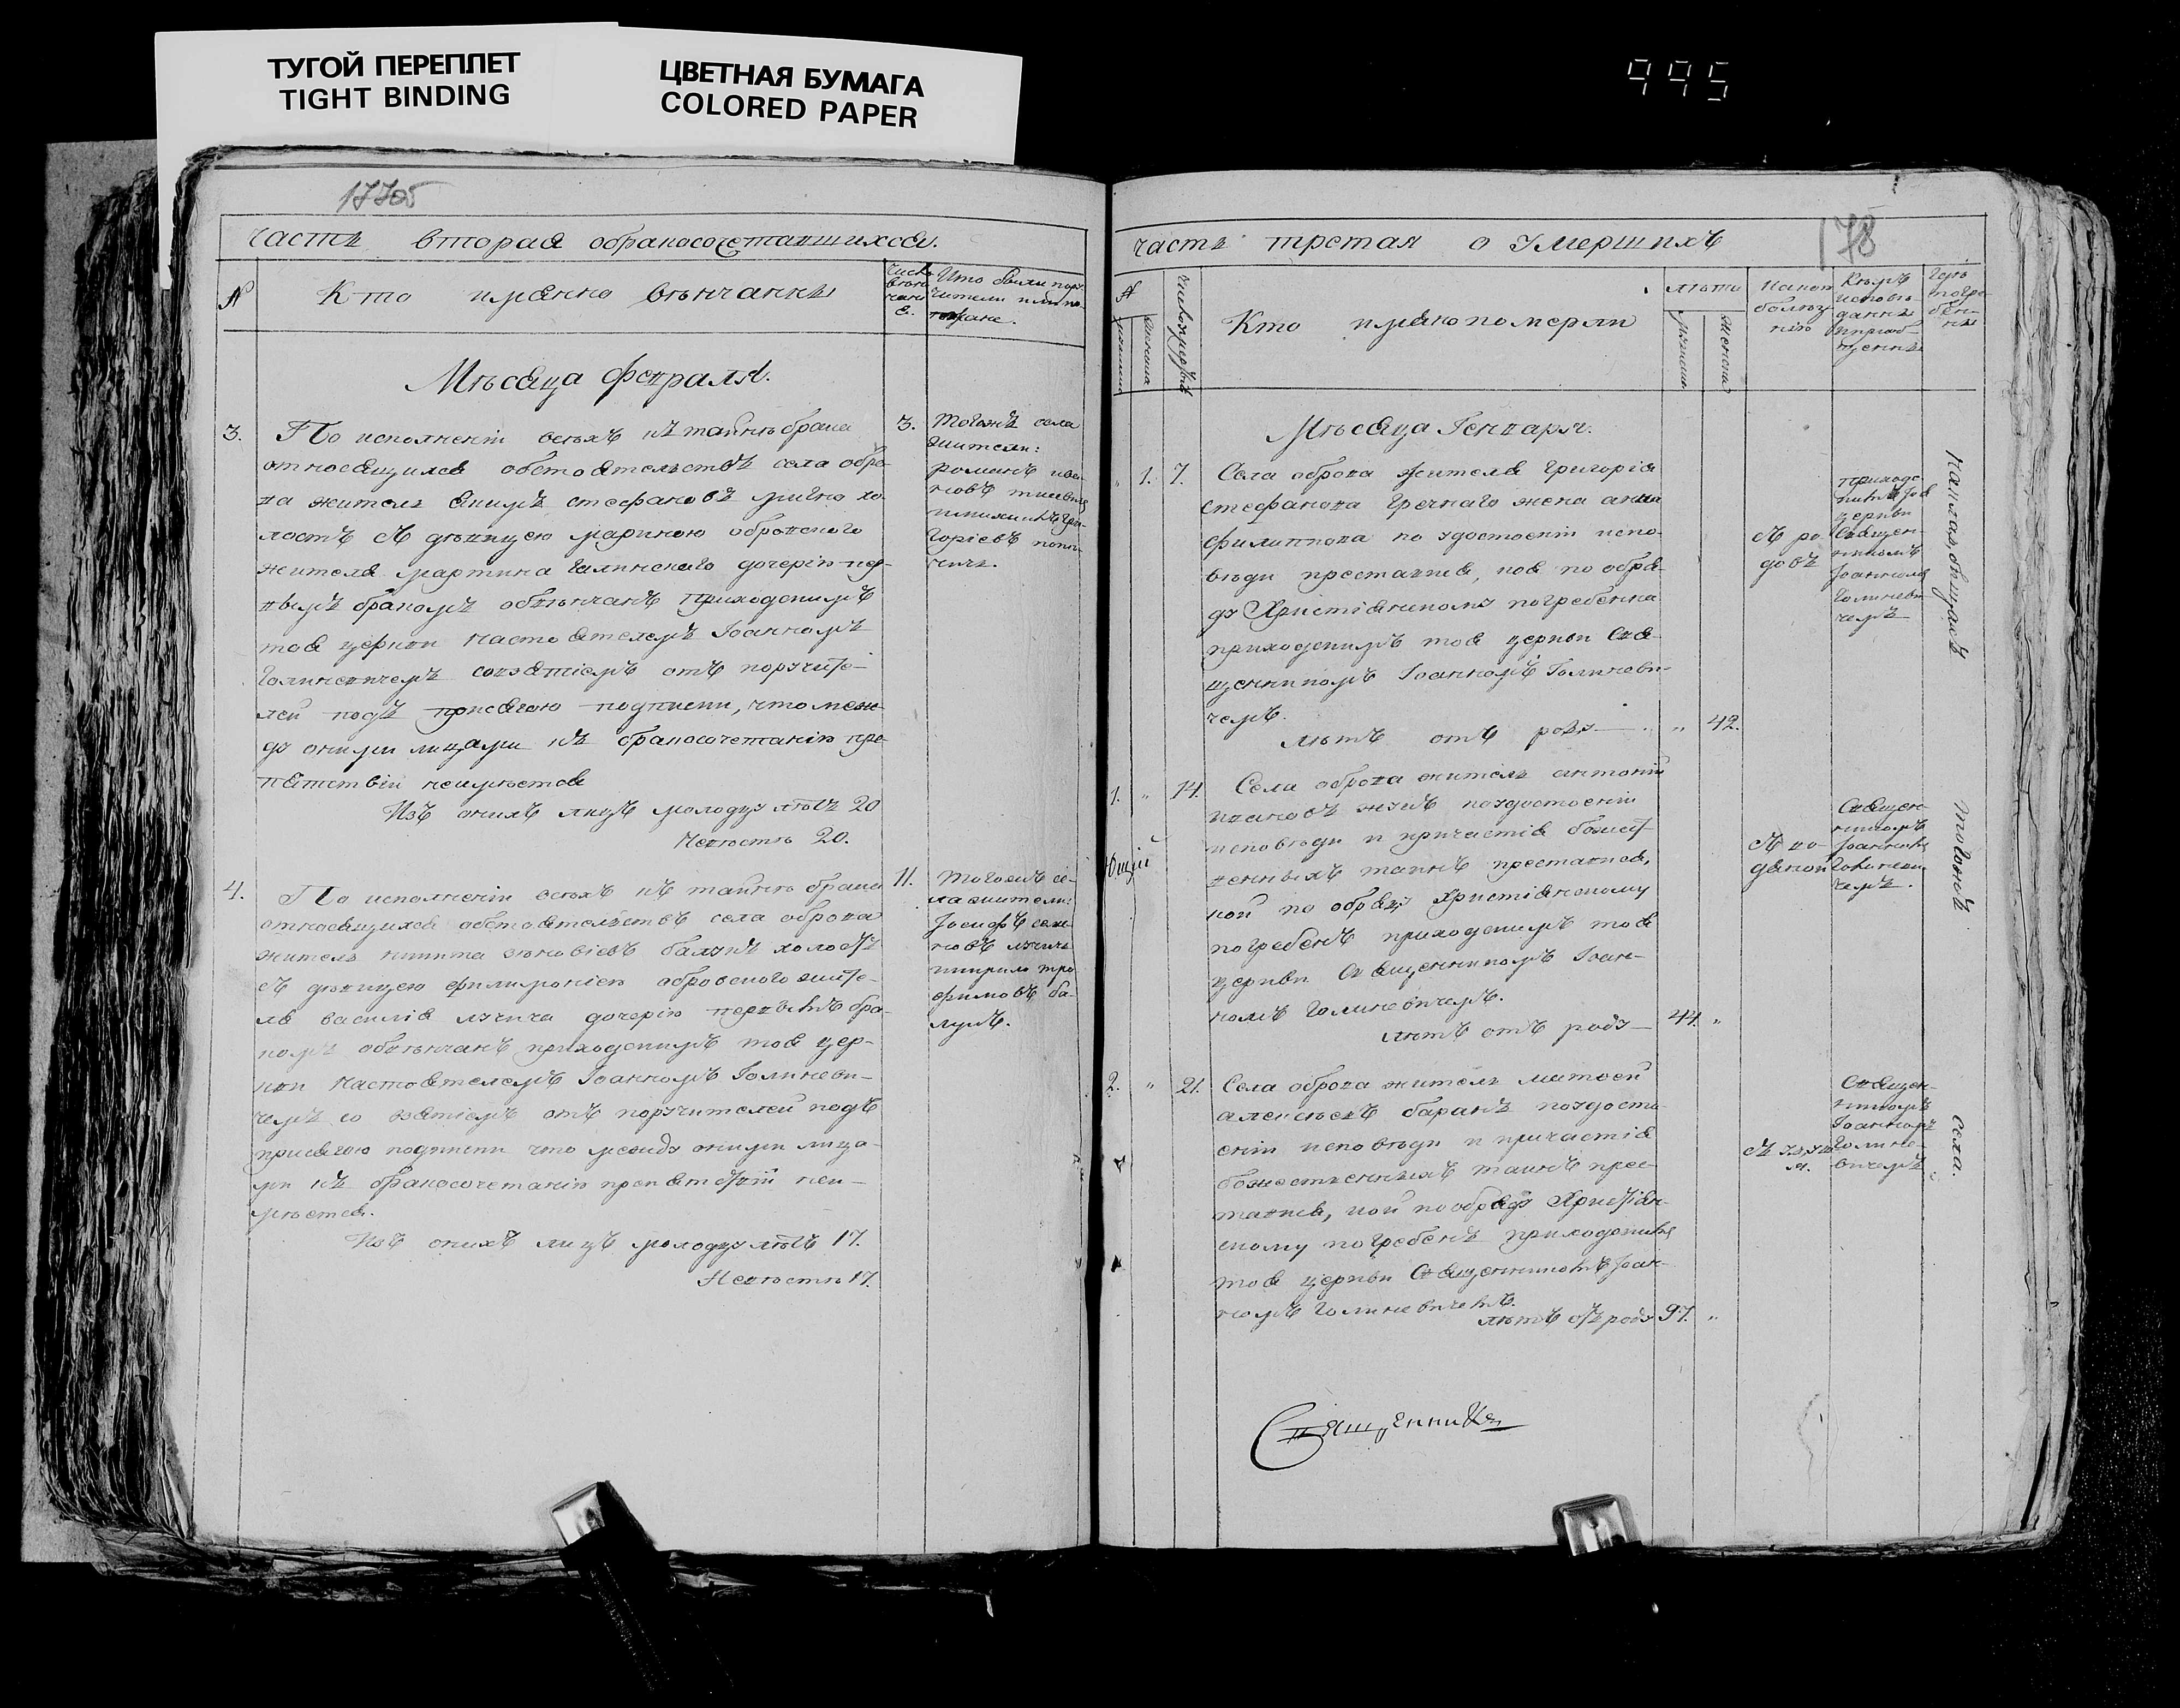 ТУГОЙ ПЕРЕПЛЕТ
TIGHT BINDING
ЦВЕТНАЯ БУМАГА
COLORED PAPER
995
часть вторая обракосочетавшихся.
№
Кто именно вѣнчанны
Мѣсяца февраля.
3.
По исполненіи всѣхъ къ тайнѣ брака
относящихся обстоятельствъ села обро-
ва житель стефановъ хо-
лостъ съ дѣвицею мариною обровского
жителя мартина галинского дочерію пер-
вымъ бракомъ обвѣнчанъ приходскимъ
тоя церкви настоятелемъ Іоанномъ
Голиневичемъ совзятіемъ отъ поручите-
лей подъ присягою подписки, что меж-
ду оними лицами къ бракосочетанію пре-
пятствій неимѣется
Изъ онихъ лицъ молодцу лѣтъ 20
Невѣстѣ 20.
3.
Тогожъ села
жители:
романъ
Григоріевъ
4.
По исполненіи всѣхъ къ тайнѣ брака
относящихся обстоятельствъ села оброва
житель никита зѣновіевъ холостъ
съ дѣвицею филимоніею обровского жите-
ля василія лучича дочерію первымъ бра-
комъ обвѣнчанъ приходскимъ тоя цер-
кви настоятелемъ Іоанномъ Голиневи-
чемъ со взятіемъ отъ поручителей подъ
присягою подписки что между оними лица-
ми къ бракосочетанію препятствій неи-
мѣется.
Изъ онихъ лицъ молодцу лѣтъ 17.
Невѣстѣ 17.
11.
Тогожъ се-
ла жители:
Іосифъ семе-
новъ лучичъ
кирило тро-
фимовъ ба-
лукъ.
178
часть третая о умершихъ
№
Кто имяно померли
лѣта
Какою
болѣз-
нію
Кѣмъ
исповѣ-
данны
и приоб-
щенны
Гдѣ
погре-
бен-
ны
Мѣсяца Генваря.
" 1. 7.
Села оброва жителя григорія
стефанова Гречнаго жена анна
филиппова по удостоеніи испо-
вѣди преставися, коя по обря-
ду Християнскому погребенна
приходскимъ тоя церкви Свя-
щенникомъ Іоанномъ Голиневи-
чемъ.
лѣтъ отъ роду — " 42.
съ ро-
довъ
приходс-
кимъ тоя
церкви
Священ-
никомъ
Іоанномъ
Голиневи-
чемъ
1. " 14.
Села оброва житель антоній
ивановъ жукъ поудостоеніи
исповѣди и причастія божест-
венныхъ таинъ преставися,
кой по обряду Християнскому
погребенъ приходскимъ тоя
церкви Священникомъ Іоан-
номъ Голиневичемъ.
лѣтъ отъ роду — 44. "
Священ-
никомъ
Іоанномъ
Голиневи-
чемъ.
2. " 21.
Села оброва житель матвей
алексѣевъ баранъ поудосто-
еніи исповѣди и причастія
божественныхъ таинъ прес-
тавися, кой пообряду Християн-
скому погребенъ приходскимъ
тоя церкви Священникомъ Іоан-
номъ Голиневичемъ.
лѣтъ отъ роду 97. "
Священ-
никомъ
Іоанномъ
Голине-
вичемъ
села.
Священникъ